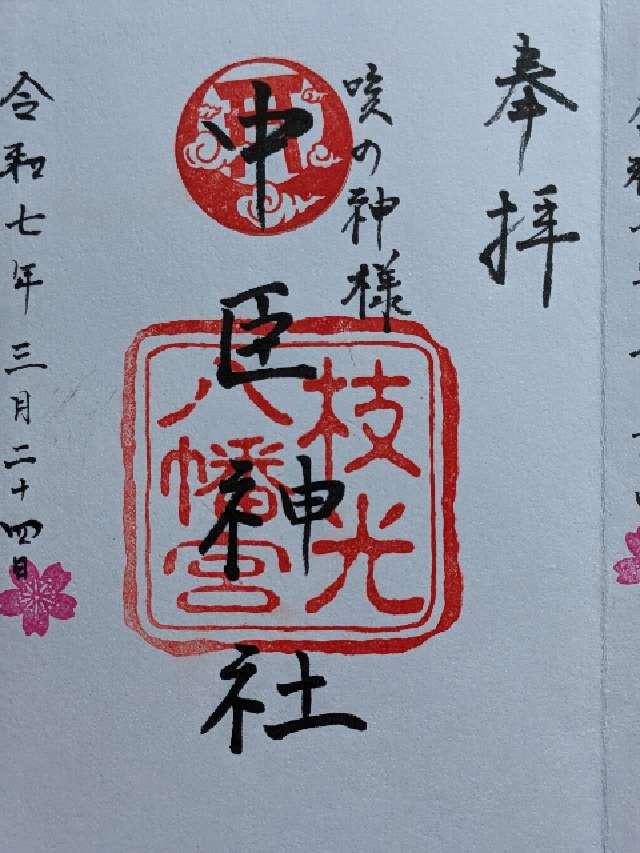 奉拝
咳の神様
中臣神社
枝光
八幡宮
令和七年三月二十四日